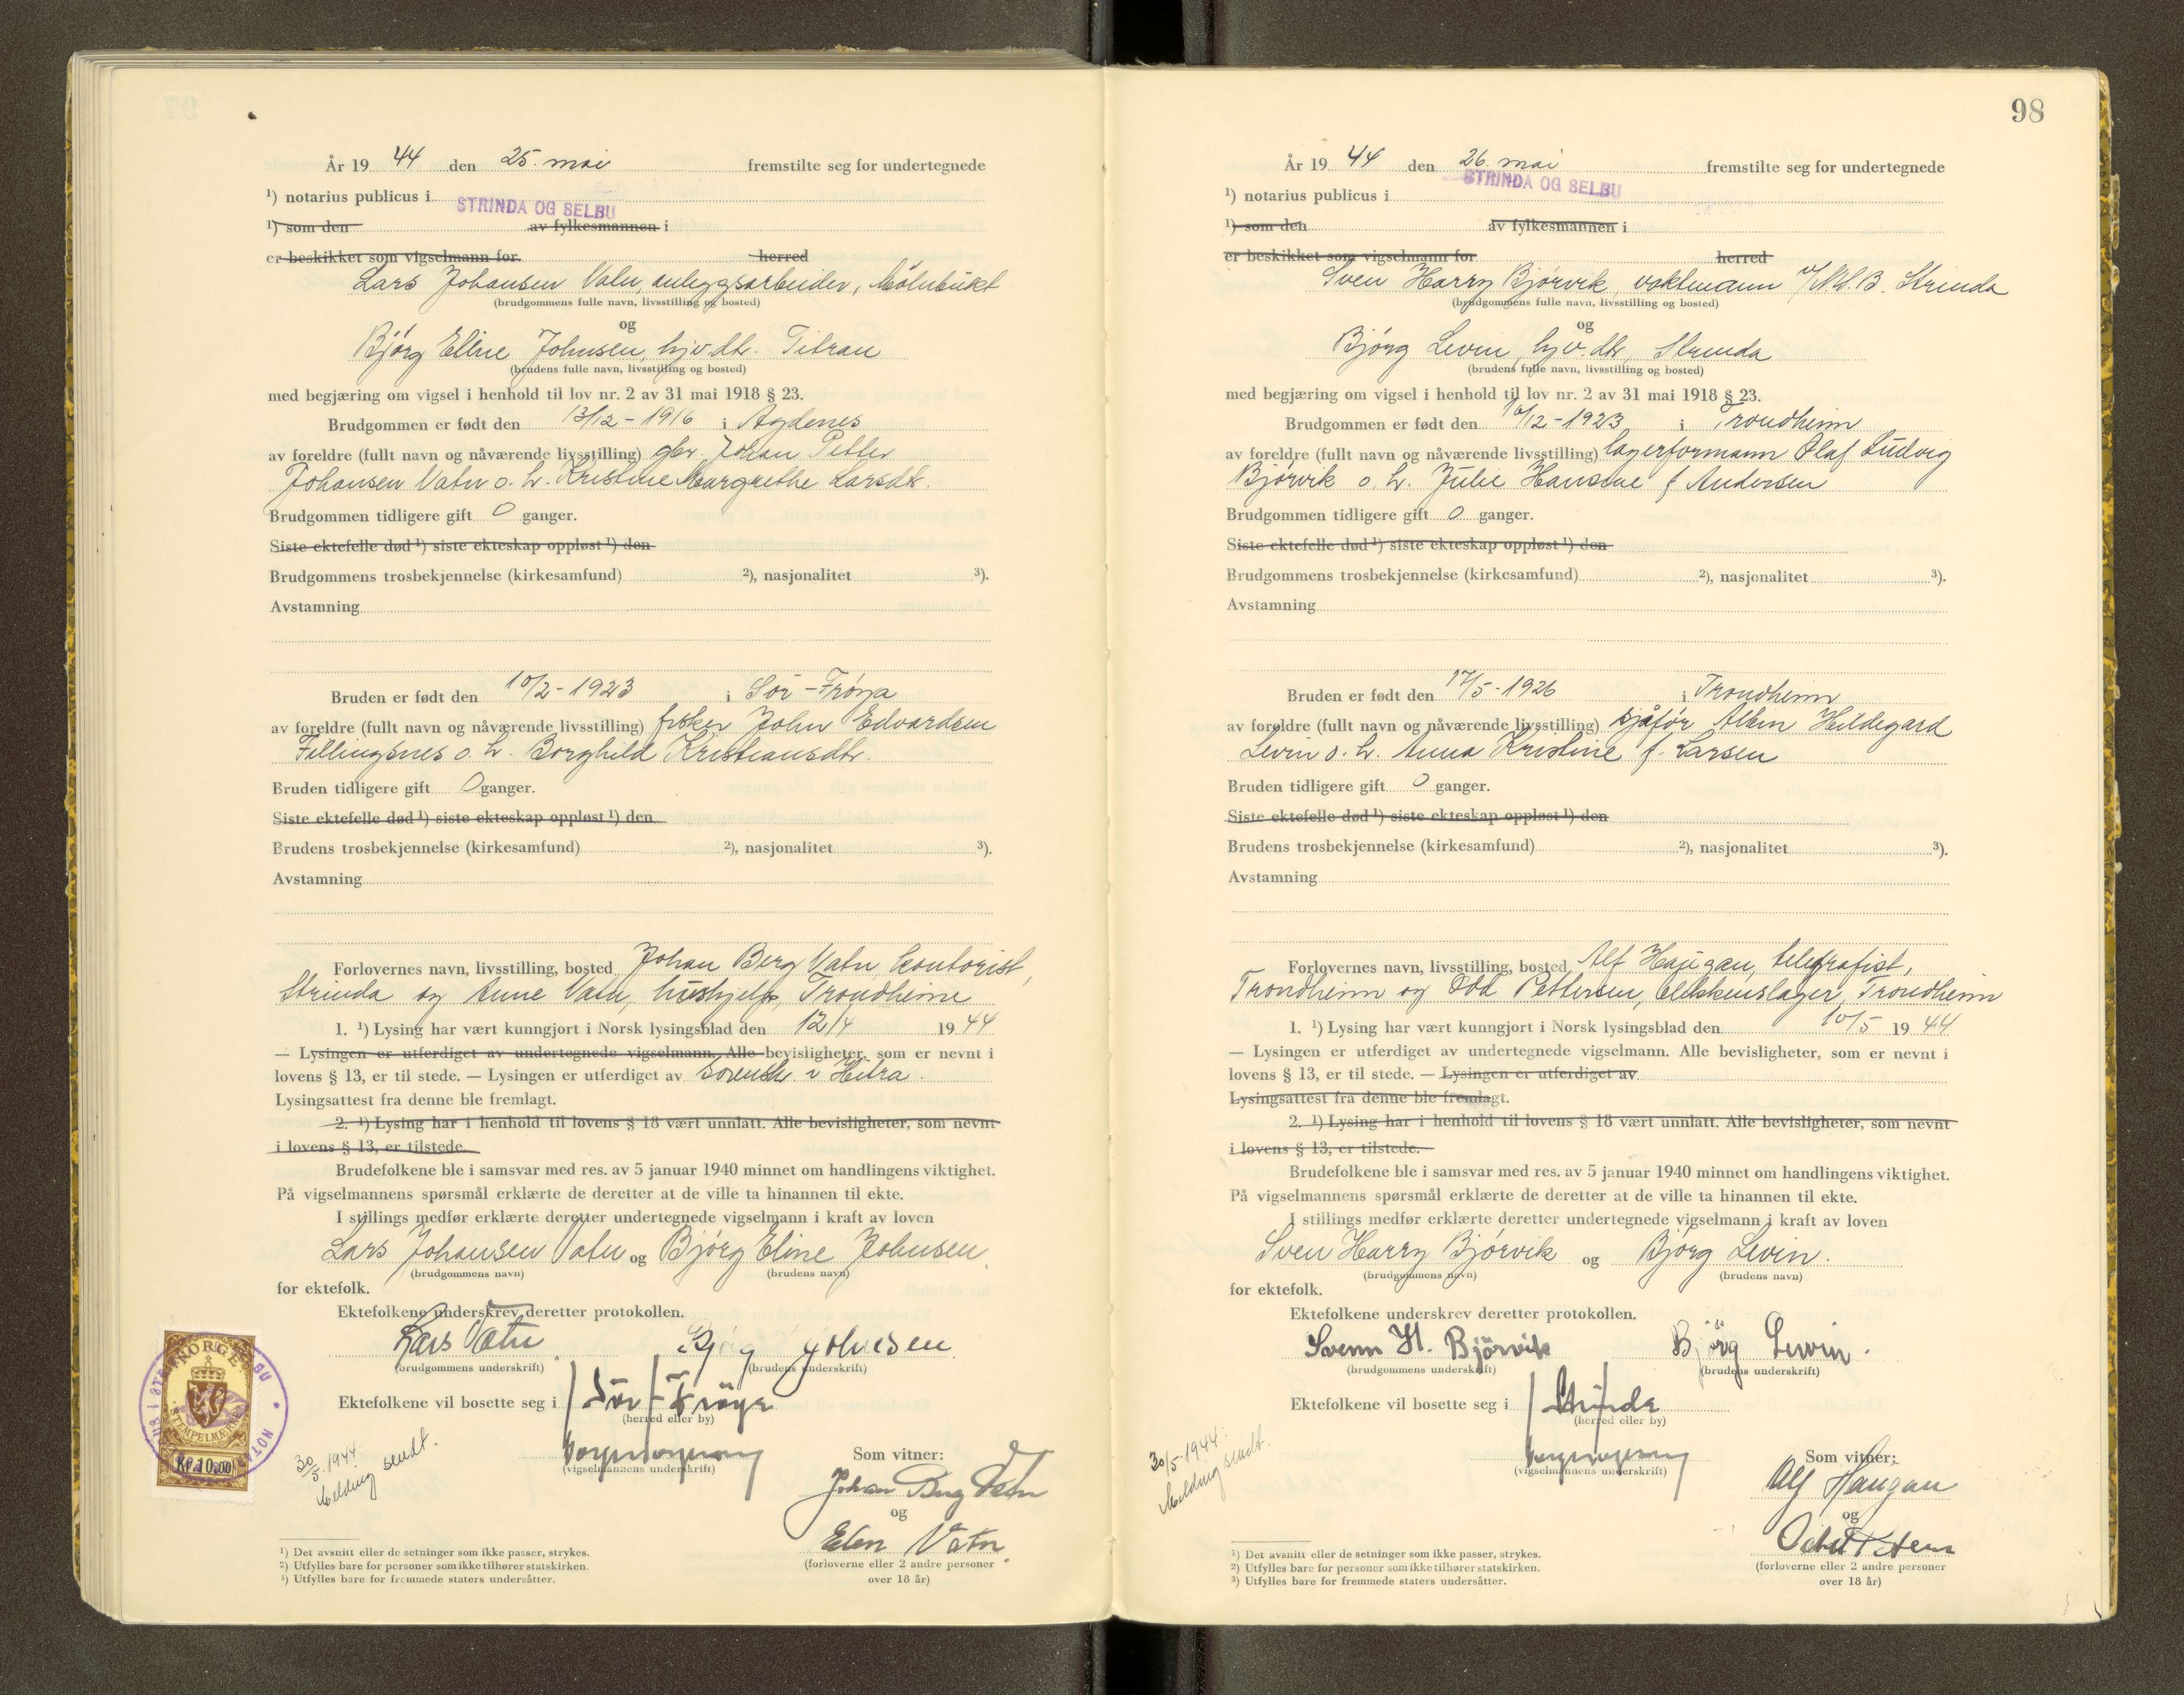 År 19 44 den 25. mai fremstilte seg for undertegnede
¹) notarius publicus i STRINDA OG SELBU
¹) som den av fylkesmannen i
er beskikket som vigselmann for herred
Lars Johansen Vatn, anleggsarbeider, Mølnbukt
(brudgommens fulle navn, livsstilling og bosted)
og
Bjørg Eline Johnsen, hjv. dtr. Titran
(brudens fulle navn, livsstilling og bosted)
med begjæring om vigsel i henhold til lov nr. 2 av 31 mai 1918 § 23.
Brudgommen er født den 13/12 - 1916 i Agdenes
av foreldre (fullt navn og nåværende livsstilling) gbr. Johan Petter
Johansen Vatn o. h. Kristine Margrethe Larsdtr.
Brudgommen tidligere gift 0 ganger.
Siste ektefelle død ¹) siste ekteskap oppløst ¹) den
Brudgommens trosbekjennelse (kirkesamfund) ²), nasjonalitet ³).
Avstamning
Bruden er født den 10/2 - 1923 i Sør-Frøya
av foreldre (fullt navn og nåværende livsstilling) fisker John Edvardsen
Fillingsnes o. h. Borghild Kristiansdtr.
Bruden tidligere gift 0 ganger.
Siste ektefelle død ¹) siste ekteskap oppløst ¹) den
Brudens trosbekjennelse (kirkesamfund) ²), nasjonalitet ³).
Avstamning
Forlovernes navn, livsstilling, bosted Johan Berg Vatn, kontorist,
Strinda og Anne Vatn, hushjelp, Trondheim
1. ¹) Lysing har vært kunngjort i Norsk lysingsblad den 12/4 19 44
— Lysingen er utferdiget av undertegnede vigselmann. Alle bevisligheter, som er nevnt i
lovens § 13, er til stede. — Lysingen er utferdiget av sorenskr. i Hitra.
Lysingsattest fra denne ble fremlagt.
2. ¹) Lysing har i henhold til lovens § 18 vært unnlatt. Alle bevisligheter, som nevnt
i lovens § 13, er tilstede.
Brudefolkene ble i samsvar med res. av 5 januar 1940 minnet om handlingens viktighet.
På vigselmannens spørsmål erklærte de deretter at de ville ta hinannen til ekte.
I stillings medfør erklærte deretter undertegnede vigselmann i kraft av loven
Lars Johansen Vatn og Bjørg Eline Johnsen.
(brudgommens navn) (brudens navn)
for ektefolk.
Ektefolkene underskrev deretter protokollen.
Lars Vatn Bjørg Johnsen
(brudgommens underskrift) (brudens underskrift)
Ektefolkene vil bosette seg i Sør-Frøya
(herred eller by)
NORGE
STEMPELMERKE
Kr. 10.00
30/5-1944.
Melding sendt.
(vigselmannens underskrift)
Som vitner:
Johan Berg Vatn
og
Elen Vatn
(forloverne eller 2 andre personer
over 18 år)
¹) Det avsnitt eller de setninger som ikke passer, strykes.
²) Utfylles bare for personer som ikke tilhører statskirken.
³) Utfylles bare for fremmede staters undersåtter.
98
År 19 44 den 26. mai fremstilte seg for undertegnede
¹) notarius publicus i STRINDA OG SELBU
¹) som den av fylkesmannen i
er beskikket som vigselmann for herred
Sven Harry Bjørvik, vaktmann Strinda
(brudgommens fulle navn, livsstilling og bosted)
og
Bjørg Levin, hjv. dtr., Strinda
(brudens fulle navn, livsstilling og bosted)
med begjæring om vigsel i henhold til lov nr. 2 av 31 mai 1918 § 23.
Brudgommen er født den 16/12 - 1923 i Trondheim
av foreldre (fullt navn og nåværende livsstilling) lagerformann Olaf Ludvig
Bjørvik o. h. Julie Hansine f. Andersen
Brudgommen tidligere gift 0 ganger.
Siste ektefelle død ¹) siste ekteskap oppløst ¹) den
Brudgommens trosbekjennelse (kirkesamfund) ²), nasjonalitet ³).
Avstamning
Bruden er født den 17/5 - 1926 i Trondheim
av foreldre (fullt navn og nåværende livsstilling) sjåfør Hildegard
Levin o. h. Anna Kristine f. Larsen
Bruden tidligere gift 0 ganger.
Siste ektefelle død ¹) siste ekteskap oppløst ¹) den
Brudens trosbekjennelse (kirkesamfund) ²), nasjonalitet ³).
Avstamning
Forlovernes navn, livsstilling, bosted Alf Haugan, telegrafist,
Trondheim og Odd Pettersen, blikkenslager, Trondheim
1. ¹) Lysing har vært kunngjort i Norsk lysingsblad den 10/5 19 44
— Lysingen er utferdiget av undertegnede vigselmann. Alle bevisligheter, som er nevnt i
lovens § 13, er til stede. — Lysingen er utferdiget av
Lysingsattest fra denne ble fremlagt.
2. ¹) Lysing har i henhold til lovens § 18 vært unnlatt. Alle bevisligheter, som nevnt
i lovens § 13, er tilstede.
Brudefolkene ble i samsvar med res. av 5 januar 1940 minnet om handlingens viktighet.
På vigselmannens spørsmål erklærte de deretter at de ville ta hinannen til ekte.
I stillings medfør erklærte deretter undertegnede vigselmann i kraft av loven
Sven Harry Bjørvik og Bjørg Levin.
(brudgommens navn) (brudens navn)
for ektefolk.
Ektefolkene underskrev deretter protokollen.
Svenn H. Bjørvik Bjørg Levin.
(brudgommens underskrift) (brudens underskrift)
Ektefolkene vil bosette seg i Strinda
(herred eller by)
30/5-1944.
Melding sendt.
(vigselmannens underskrift)
Som vitner:
Alf Haugan
og
(forloverne eller 2 andre personer
over 18 år)
¹) Det avsnitt eller de setninger som ikke passer, strykes.
²) Utfylles bare for personer som ikke tilhører statskirken.
³) Utfylles bare for fremmede staters undersåtter.